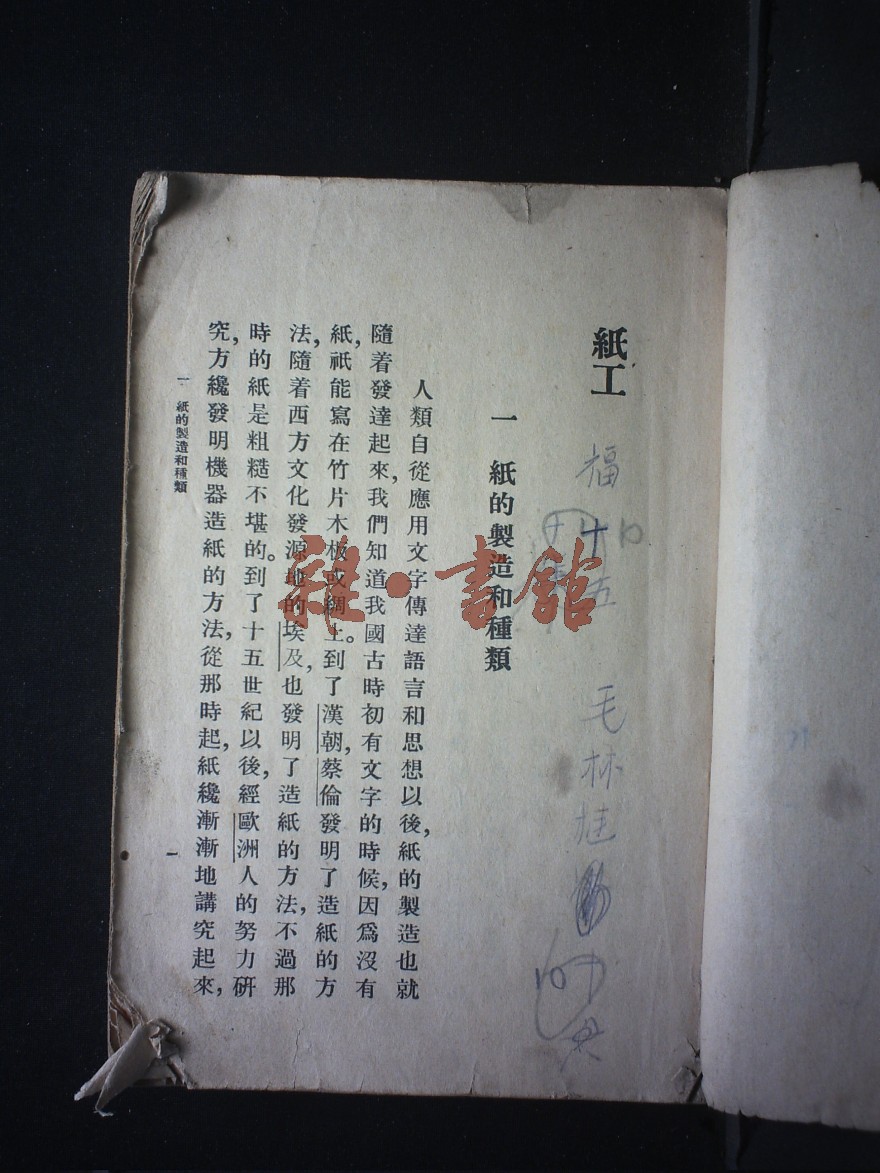 紙工
一　紙的製造和種類
人類自從應用文字傳達語言和思想以後，紙的製造也就
隨着發達起來，我們知道我國古時初有文字的時候，因爲沒有
紙，祇能寫在竹片木板或綢上。到了漢朝，蔡倫發明了造紙的方
法，隨着西方文化發源地的埃及，也發明了造紙的方法，不過那
時的紙是粗糙不堪的。到了十五世紀以後，經歐洲人的努力研
究，方纔發明機器造紙的方法，從那時起，紙纔漸漸地講究起來，
一　紙的製造和種類
一
福
十五
毛林桂
雜·書館